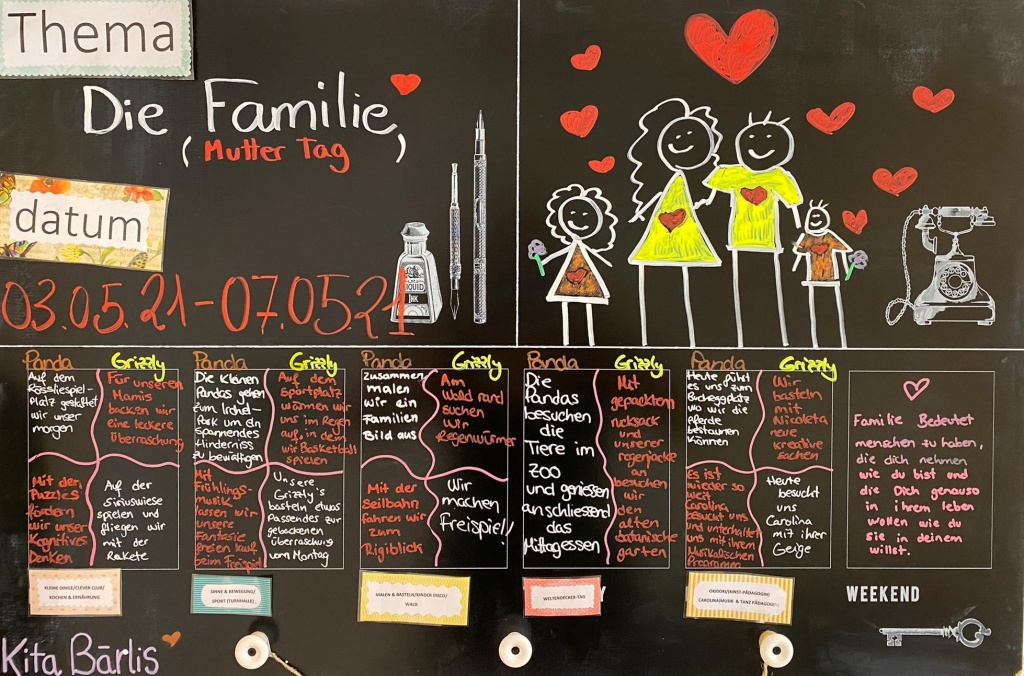 Thema
Die Familie
( Mutter Tag )
datum
03.05.21-07.05.21
LIQUID
INK
Panda
Grizzly
Auf dem
Rössliespiel-
Platz gestaltet
wir unser
morgen
Für unseren
Mamis
backen wir
eine leckere
überraschung
Mit den
Puzzles
fördern
wir unser
Kognitives
Denken
Auf der
Siriuswiese
spielen und
fliegen wir
mit der
Rakete
KLEINE DINGE/CLEVER CLUB/
KOCHEN & ERNÄHRUNG
Panda
Grizzly
Die Kleinen
Pandas gehen
zum Irchel-
Park um ein
spannendes
Hinderniss
zu bewältigen
Auf dem
Sportplatz
wärmen wir
uns im Regen
auf, in dem
wir Basketball
spielen
Mit
Frühlings-
musik
lassen wir
unsere
Fantasie
freien lauf
beim Freispiel
Unsere
Grizzly's
basteln etwas
Passendes zur
gebackenen
überraschung
vom Montag
SINNE & BEWEGUNG/
SPORT (TURNHALLE)
Panda
Grizzly
Zusammen
malen
wir ein
Familien
Bild aus
Am
Wald rand
suchen
wir
Regenwürmer
Mit der
Seilbahn
fahren wir
zum
Rigiblick
Wir
machen
Freispiel!
MALEN & BASTELN/KINDER DISCO/
WALD
Panda
Grizzly
Die
Pandas
besuchen
die
Tiere im
Zoo
und geniessen
anschliessend
das
Mittagessen
Mit
gepacktem
rucksack
und
unserer
regenjacke
an
besuchen
wir
den
alten
botanische
garten
WELTENDECKER-TAG
Panda
Grizzly
Heute führt
es uns zum
Bucheggplatz
wo wir die
pferde
bestaunen
können
Wir
basteln
mit
Nicoleta
neue
kreative
sachen
Es ist
wieder so
weit
Carolina
besucht uns
und unterhaltet
uns mit ihrem
Musikalischen
Programm
Heute
besucht
uns
Carolina
mit ihrer
Geige
Familie Bedeutet
menschen zu haben,
die dich nehmen
wie du bist und
die Dich genauso
in ihrem leben
wollen wie du
sie in deinem
willst.
WEEKEND
Kita Bärlis